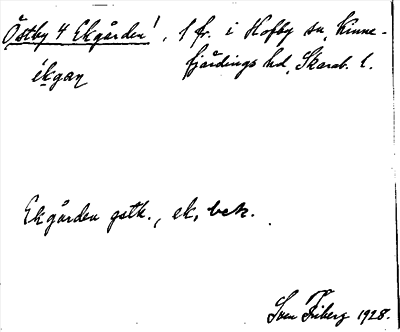 Östby 4 Ekgården!, 1 fr. i Hofby sn, Kinne-
fjärdings hd, Skarab. l.
ékgaɳ
Ekgården gstk., ek, bek.
Sven Friberg 1928.